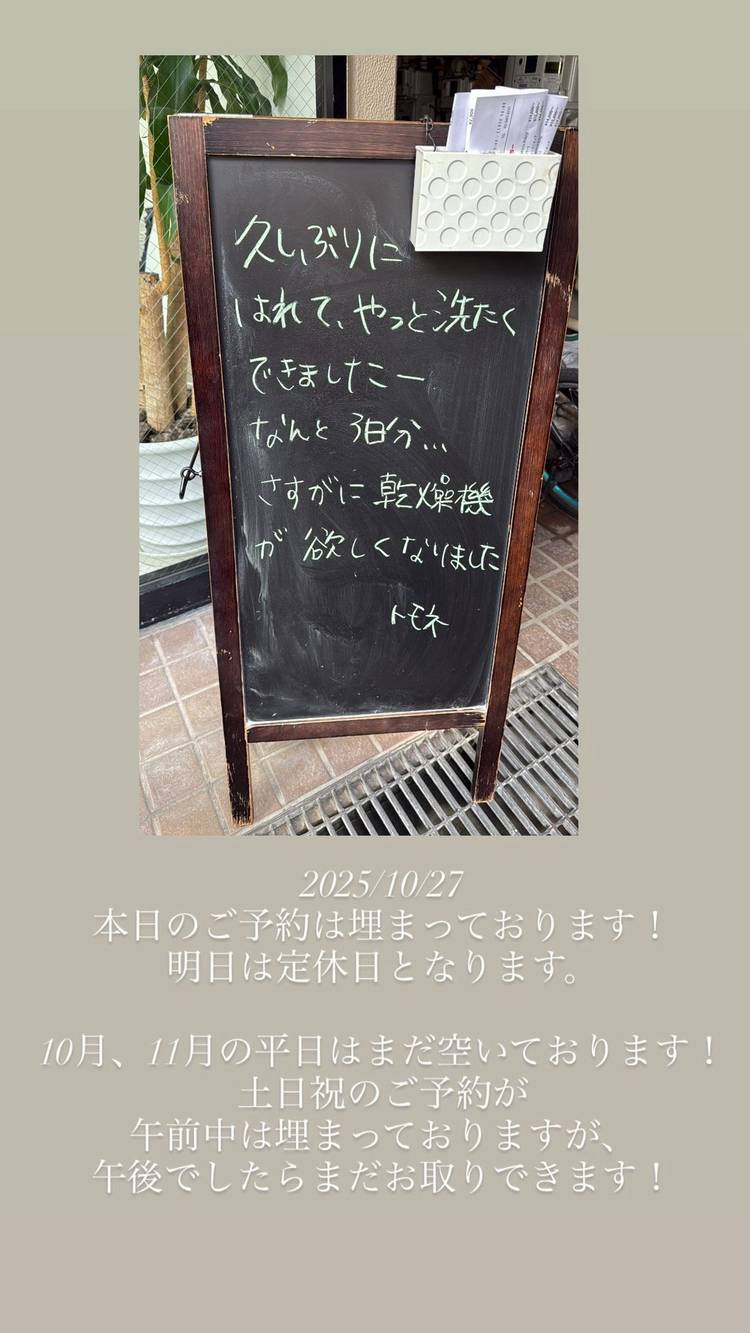 久しぶりに
はれて、やっと洗たく
できましたこー
なんと 3日分...
さすがに乾燥機
が 欲しくなりました
トモネ
2025/10/27
本日のご予約は埋まっております！
明日は定休日となります。
10月、11月の平日はまだ空いております！
土日祝のご予約が
午前中は埋まっておりますが、
午後でしたらまだお取りできます！